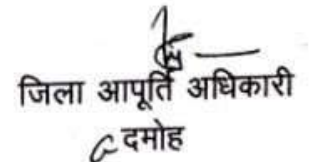 जिला आपूर्ति अधिकारी
दमोह